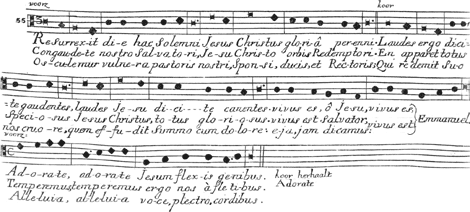 voorz. koor
55
Resurrex-it di-e hac solemni Jesus Christus glori-â perenni. Laudes ergo dici-
Congaude-te nostro Salva-to-ri, Je-su Chris-to orbis Redemptori. En apparet totus
Os-cule-mur vulne-ra pastoris nostri, Spon-si, ducis, et Rectoris; Qui redemit suo
-te gaudentes, laudes Je-su di-ci----te canentes: vivus es, ô Jesu, vivus es,
Speci-o-sus Jesus Christus, to-tus glo-ri-o-sus: vivus est Salvator, vivus est Emmanuel,
nos cruo-re, quem ef-fu-dit summo cum do-lo-re: e-ja, jam dicamus:
voorz.
Ad-o-rate, ad-o-rate Jesum flex-is genibus. koor herhaalt
Temperemus, temperemus ergo nos à fle-ti-bus. Adorate
Alle-lui-a, alle-lui-a vo-ce, plectro, cordibus.